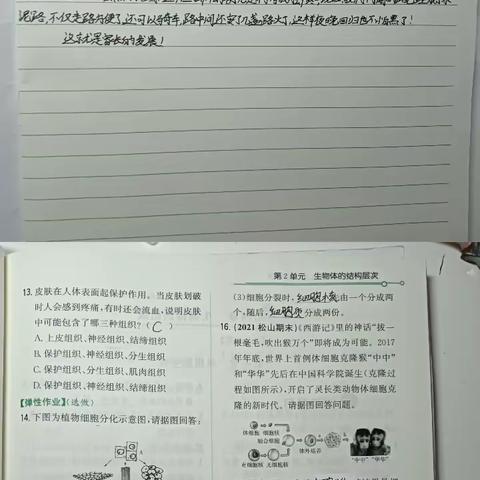 泥路,不仅走路方便了,还可以骑车,路中间还安了几盏路灯,这样夜晚回归也不怕黑了!
这就是家乡的发展!
第2单元 生物体的结构层次
13. 皮肤在人体表面起保护作用。当皮肤划破
时人会感到疼痛,有时还会流血,说明皮肤
中可能包含了哪三种组织?( C )
A. 上皮组织、神经组织、结缔组织
B. 保护组织、神经组织、分生组织
C. 保护组织、分生组织、肌肉组织
D. 保护组织、神经组织、结缔组织
【弹性作业】(选做)
14. 下图为植物细胞分化示意图,请据图回答:
(3)细胞分裂时,细胞核由一个分成两
个,随后,细胞质分成两份。
16. (2021 松山期末)《西游记》里的神话“拔一
根毫毛,吹出猴万个”即将成为可能。2017
年年底,世界上首例体细胞克隆猴“中中”
和“华华”先后在中国科学院诞生(克隆过
程如图所示),开启了灵长类动物体细胞克
隆的新时代。请据图回答问题。
体细胞 细胞核
融合细胞
体外培养
去核细胞 无细胞核
“中中” “华华”